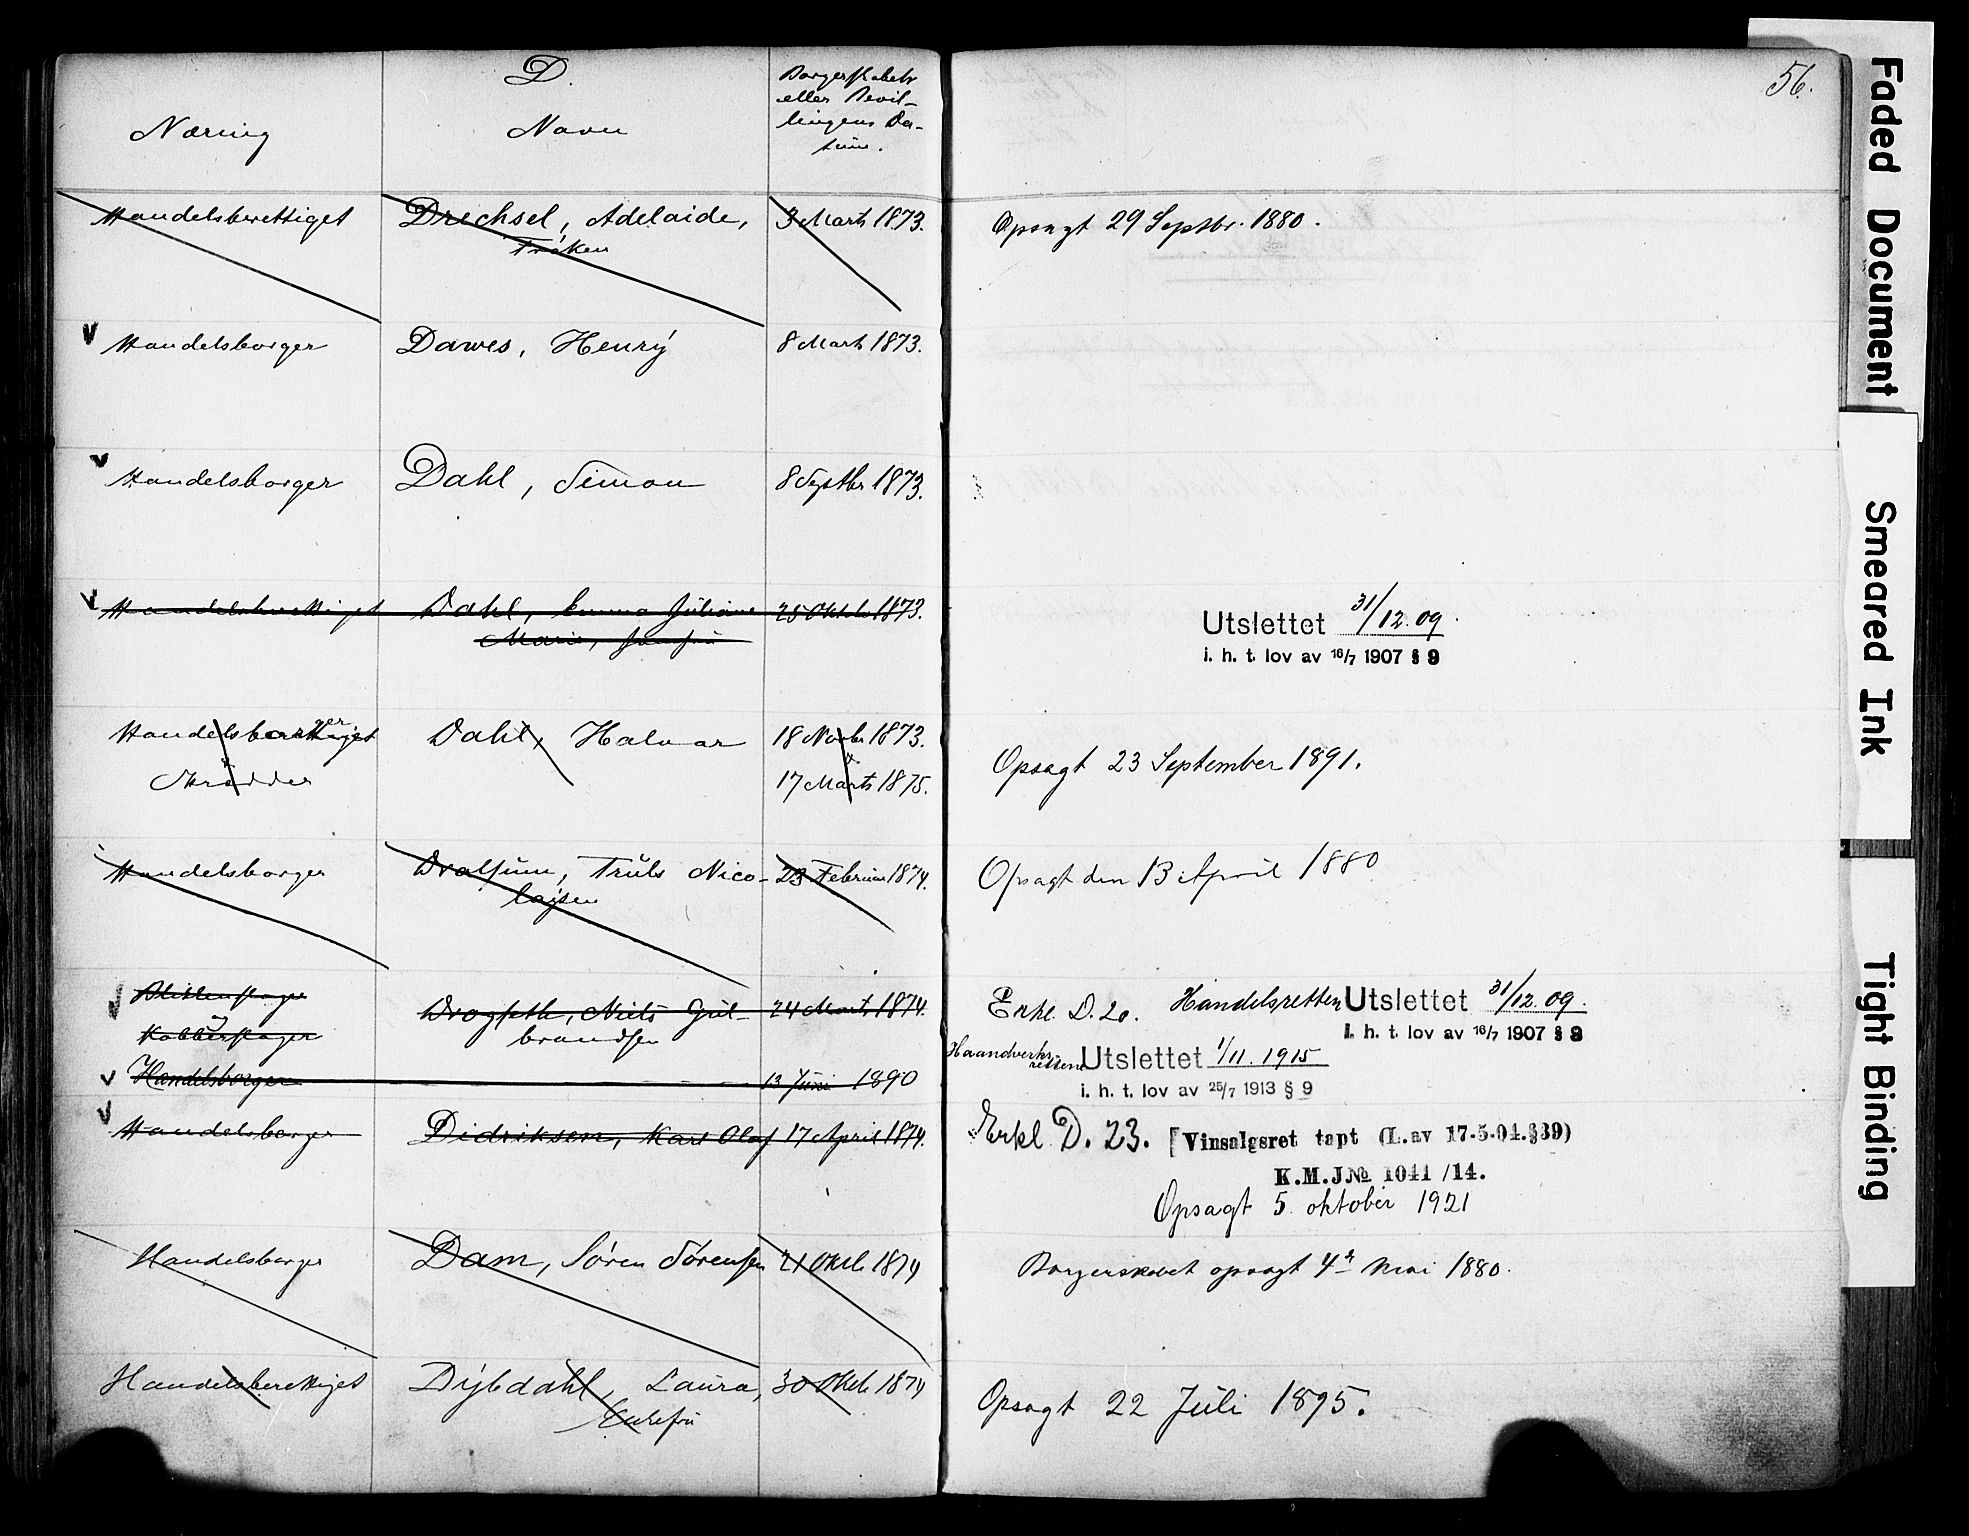 D.
56.
Næring
Navn
Borgerskabets
eller Bevil-
lingens Da-
tum.
Handelsberettiget Drechsel, Adelaide, 3 Marts 1873. Opsagt 29 Septbr. 1880.
Frøken
V Handelsborger Dawes, Henry 8 Marts 1873.
V Handelsborger Dahl, Simon 8 Septbr 1873.
V Handelsberettiget Dahl, Emma Juliane 25 Oktb 1873. Utslettet 31/12.09.
Marie, Jomfru i. h. t. lov av 16/7 1907 § 9
Dahl, Halvar 18 Novbr 1873.
Opsagt 23 September 1891.
17 Marts 1875.
Handelsborger Truls Nico- 23 Februar 1874. Opsagt den 13 April 1880
lajsen
V Blikkenslager
Niels Gul- 24 Marts 1874. Erkl. D. 20. Handelsretten Utslettet 31/12.09.
Kobberslager brandsen i. h. t. lov av 16/7 1907 § 9
Haandverks-
retten Utslettet 1/11. 1915
V Handelsborger 13 Juni 1890
i. h. t. lov av 25/7 1913 § 9
V Handelsborger Didriksen, Karl Olaf 17 April 1874. Erkl. D. 23. [Vinsalgsret tapt (L.av 17-5-04.§39)
K.M.J.№ 1041 /14.
Opsagt 5. oktober 1921
Handelsborger Dam, Søren Sørensen 21 Oktb 1874 Borgerskabet opsagt 4de Mai 1880.
Handelsberettiget Dybdahl, Laura, 30 Oktb 1874 Opsagt 22 Juli 1895.
Enkefru
Faded Document
Smeared Ink
Tight Binding